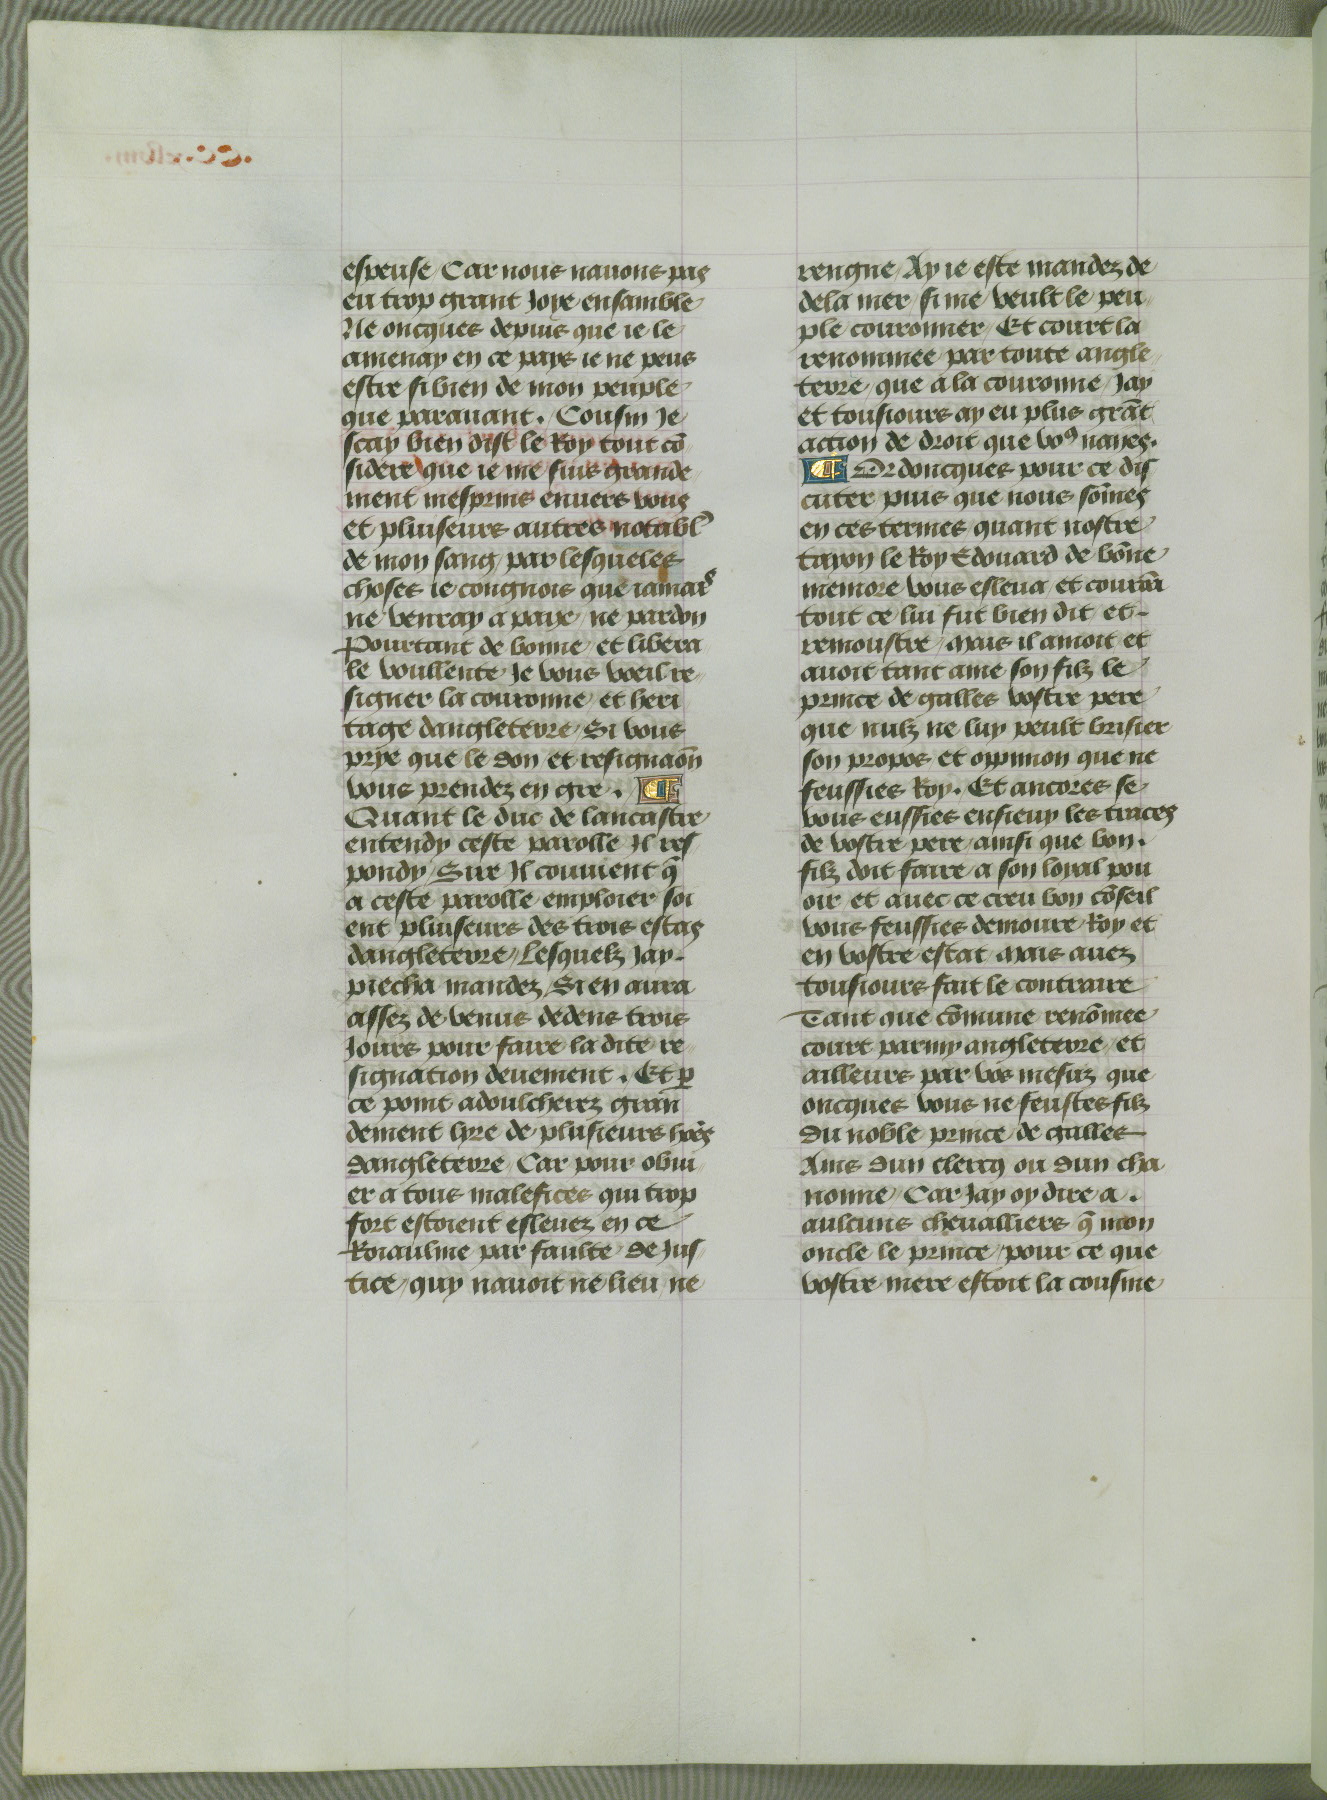 espeuse / Car nous nauons pas
eu trop grant Joye ensamble
Ne oncques depuis que ie le
amenay en ce pays ie ne peus
estre si bien de mon peuple
que parauant . Cousin Je
scay bien dist le Roy tout cõ
sidere / que ie me suis grande
ment mesprins enuers vous
et pluiseurs autres notabl’
de mon sang / par lesqueles
choses ie congnois que iamais
ne venray a paye / ne pardon
Pourtant de bonne / et libera
le voullente Je vous voeil re
signer la couronne / et heri
tage dangleterre / Si vous
prye que le don et resignaõn
vous prendez en gre .
Quant le duc de lancastre
entendy ceste parolle Il res
pondy / Sire Il conuient q̃
a ceste parolle emploier soi
ent pluiseurs des trois estas
dangleterre / Lesquelz Jay
piecha mandez / Si en aura
assez de venus dedens trois
Jours pour faire la dite re
signation deuement . Et ꝑ
ce point adoulcherez gran
dement lyre de plusieurs hõẽs
dangleterre / Car pour obui
er a tous malefices qui trop
fort estoient esleuez en ce
Roiaulme par faulte de Jus
tice / quy nauoit ne lieu / ne
rengne / Ay ie este mandez de
dela mer / si me veult le peu
ple couronner / Et court la
renommee par toute angle
terre / que a la couronne Jay
et tousiours ay eu plus grãt
action de droit que voꝰ nayes.
Or doncques pour ce dis
cuter puis que nous sõmes
en ces termes / quant nostre
tayon le Roy Edouard de bõne
memore vous esleua / et courõna
tout ce lui fut bien dit et
remoustre / Mais il amoit et
auoit tant ame son filz le
prince de galles vostre pere
que nulz ne luy peult brisier
son propos et oppinion que ne
feussies Roy . Et ancores se
vous eussies ensieuy les traces
de vostre pere / ainsi que bon .
filz doit faire a son loyal pou
oir et auec ce creu bon cõseil
vous feussies demoure Roy et
en vostre estat Mais auez
tousiours fait le contraire
Tant que cõmune renõmee
court parmy angleterre / et
ailleurs par vos mesuz que
oncques vous ne feustes filz
du noble prince de galles
Ains dun clercq ou dun cha
nonne / Car Jay oy dire a .
aulcuns cheualliers q̃ mon
oncle le prince / pour ce que
vostre mere estoit la cousine